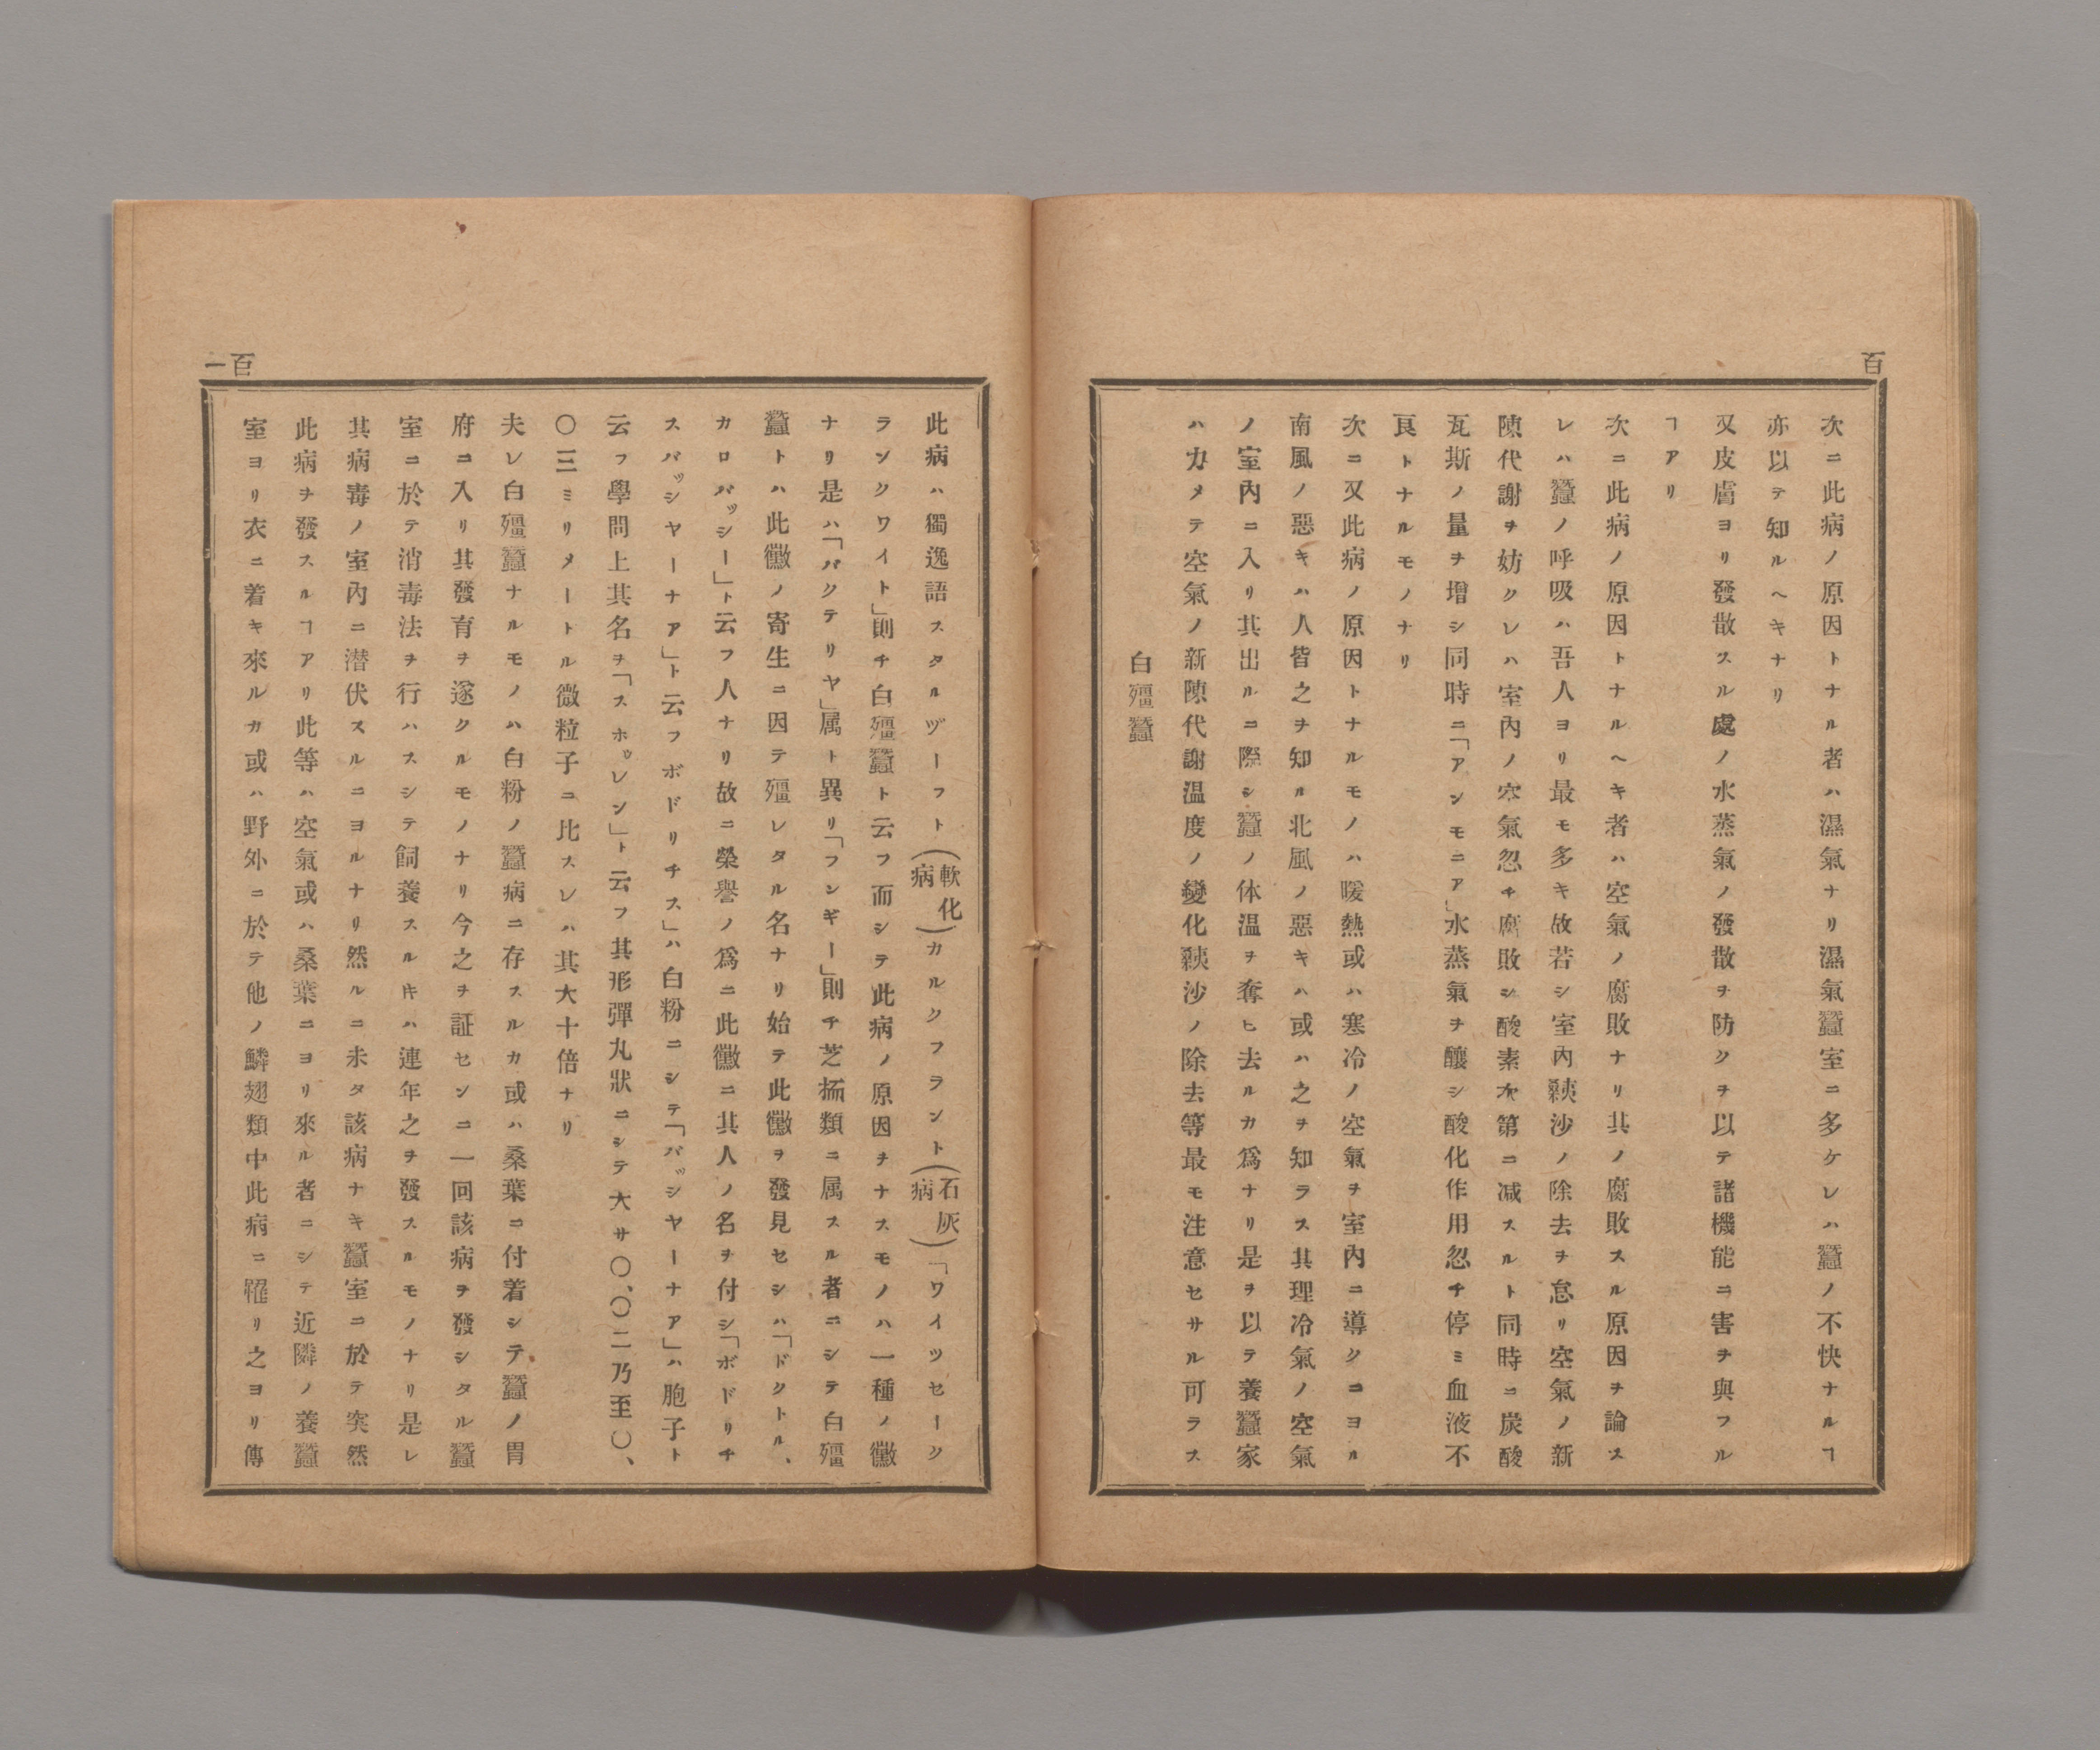 百
次ニ此病ノ原因トナル者ハ濕氣ナリ濕氣蠶室ニ多ケレハ蠶ノ不快ナルヿ
亦以テ知ルヘキナリ
又皮膚ヨリ發散スル處ノ水蒸氣ノ發散ヲ防クヲ以テ諸機能ニ害ヲ與フル
ヿアリ
次ニ此病ノ原因トナルヘキ者ハ空氣ノ腐敗ナリ其ノ腐敗スル原因ヲ論ス
レハ蠶ノ呼吸ハ吾人ヨリ最モ多キ故若シ室內䊵沙ノ除去ヲ怠リ空氣ノ新
陳代謝ヲ妨クレハ室內ノ空氣忽チ腐敗シ酸素次第ニ减スルト同時ニ炭酸
瓦斯ノ量ヲ增シ同時ニ「アンモニア」水蒸氣ヲ釀シ酸化作用忽チ停ミ血液不
良トナルモノナリ
次ニ又此病ノ原因トナルモノハ暖熱或ハ寒冷ノ空氣ヲ室內ニ導クニヨル
南風ノ惡キハ人皆之ヲ知ル北風ノ惡キハ或ハ之ヲ知ラス其理冷氣ノ空氣
ノ室內ニ入リ其出ルニ際シ蠶ノ体温ヲ奪ヒ去ルカ爲ナリ是ヲ以テ養蠶家
ハ力メテ空氣ノ新陳代謝温度ノ變化䊵沙ノ除去等最モ注意セサル可ラス
白殭蠶
百一
此病ハ獨逸語スタルヅーフト(軟化病)カルクフラント(石灰病)「ワイツセーク
ランクワイト」則チ白殭蠶ト云フ而シテ此病ノ原因ヲナスモノハ一種ノ黴
ナリ是ハ「バクテリヤ」属ト異リ「フンギー」則チ芝栭類ニ属スル者ニシテ白殭
蠶トハ此黴ノ寄生ニ因テ殭レタル名ナリ始テ此黴ヲ發見セシハ「ドクトル、
カロバッシー」ト云フ人ナリ故ニ榮譽ノ爲ニ此黴ニ其人ノ名ヲ付シ「ボドリチ
スバッシヤーナア」ト云フボドリチス」ハ白粉ニシテ「バッシヤーナア」ハ胞子ト
云フ學問上其名ヲ「スホッレン」ト云フ其形彈丸狀ニシテ大サ〇、〇二乃至〇、
〇三ミリメートル微粒子ニ比スレハ其大十倍ナリ
夫レ白殭蠶ナルモノハ白粉ノ蠶病ニ存スルカ或ハ桑葉ニ付着シテ蠶ノ胃
府ニ入リ其發育ヲ遂クルモノナリ今之ヲ証センニ一回該病ヲ發シタル蠶
室ニ於テ消毒法ヲ行ハスシテ飼養スルキハ連年之ヲ發スルモノナリ是レ
其病毒ノ室內ニ潜伏スルニヨルナリ然ルニ未タ該病ナキ蠶室ニ於テ突然
此病ヲ發スルヿアリ此等ハ空氣或ハ桑葉ニヨリ來ル者ニシテ近隣ノ養蠶
室ヨリ衣ニ着キ來ルカ或ハ野外ニ於テ他ノ鱗翅類中此病ニ罹リ之ヨリ傳